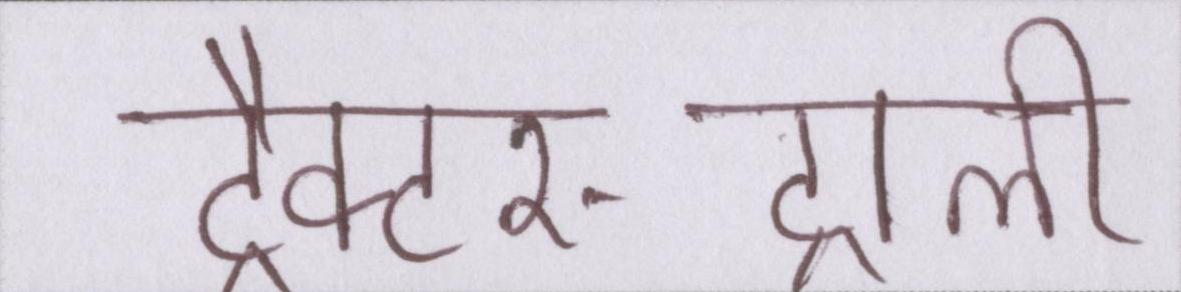 ट्रैक्टर-ट्राली